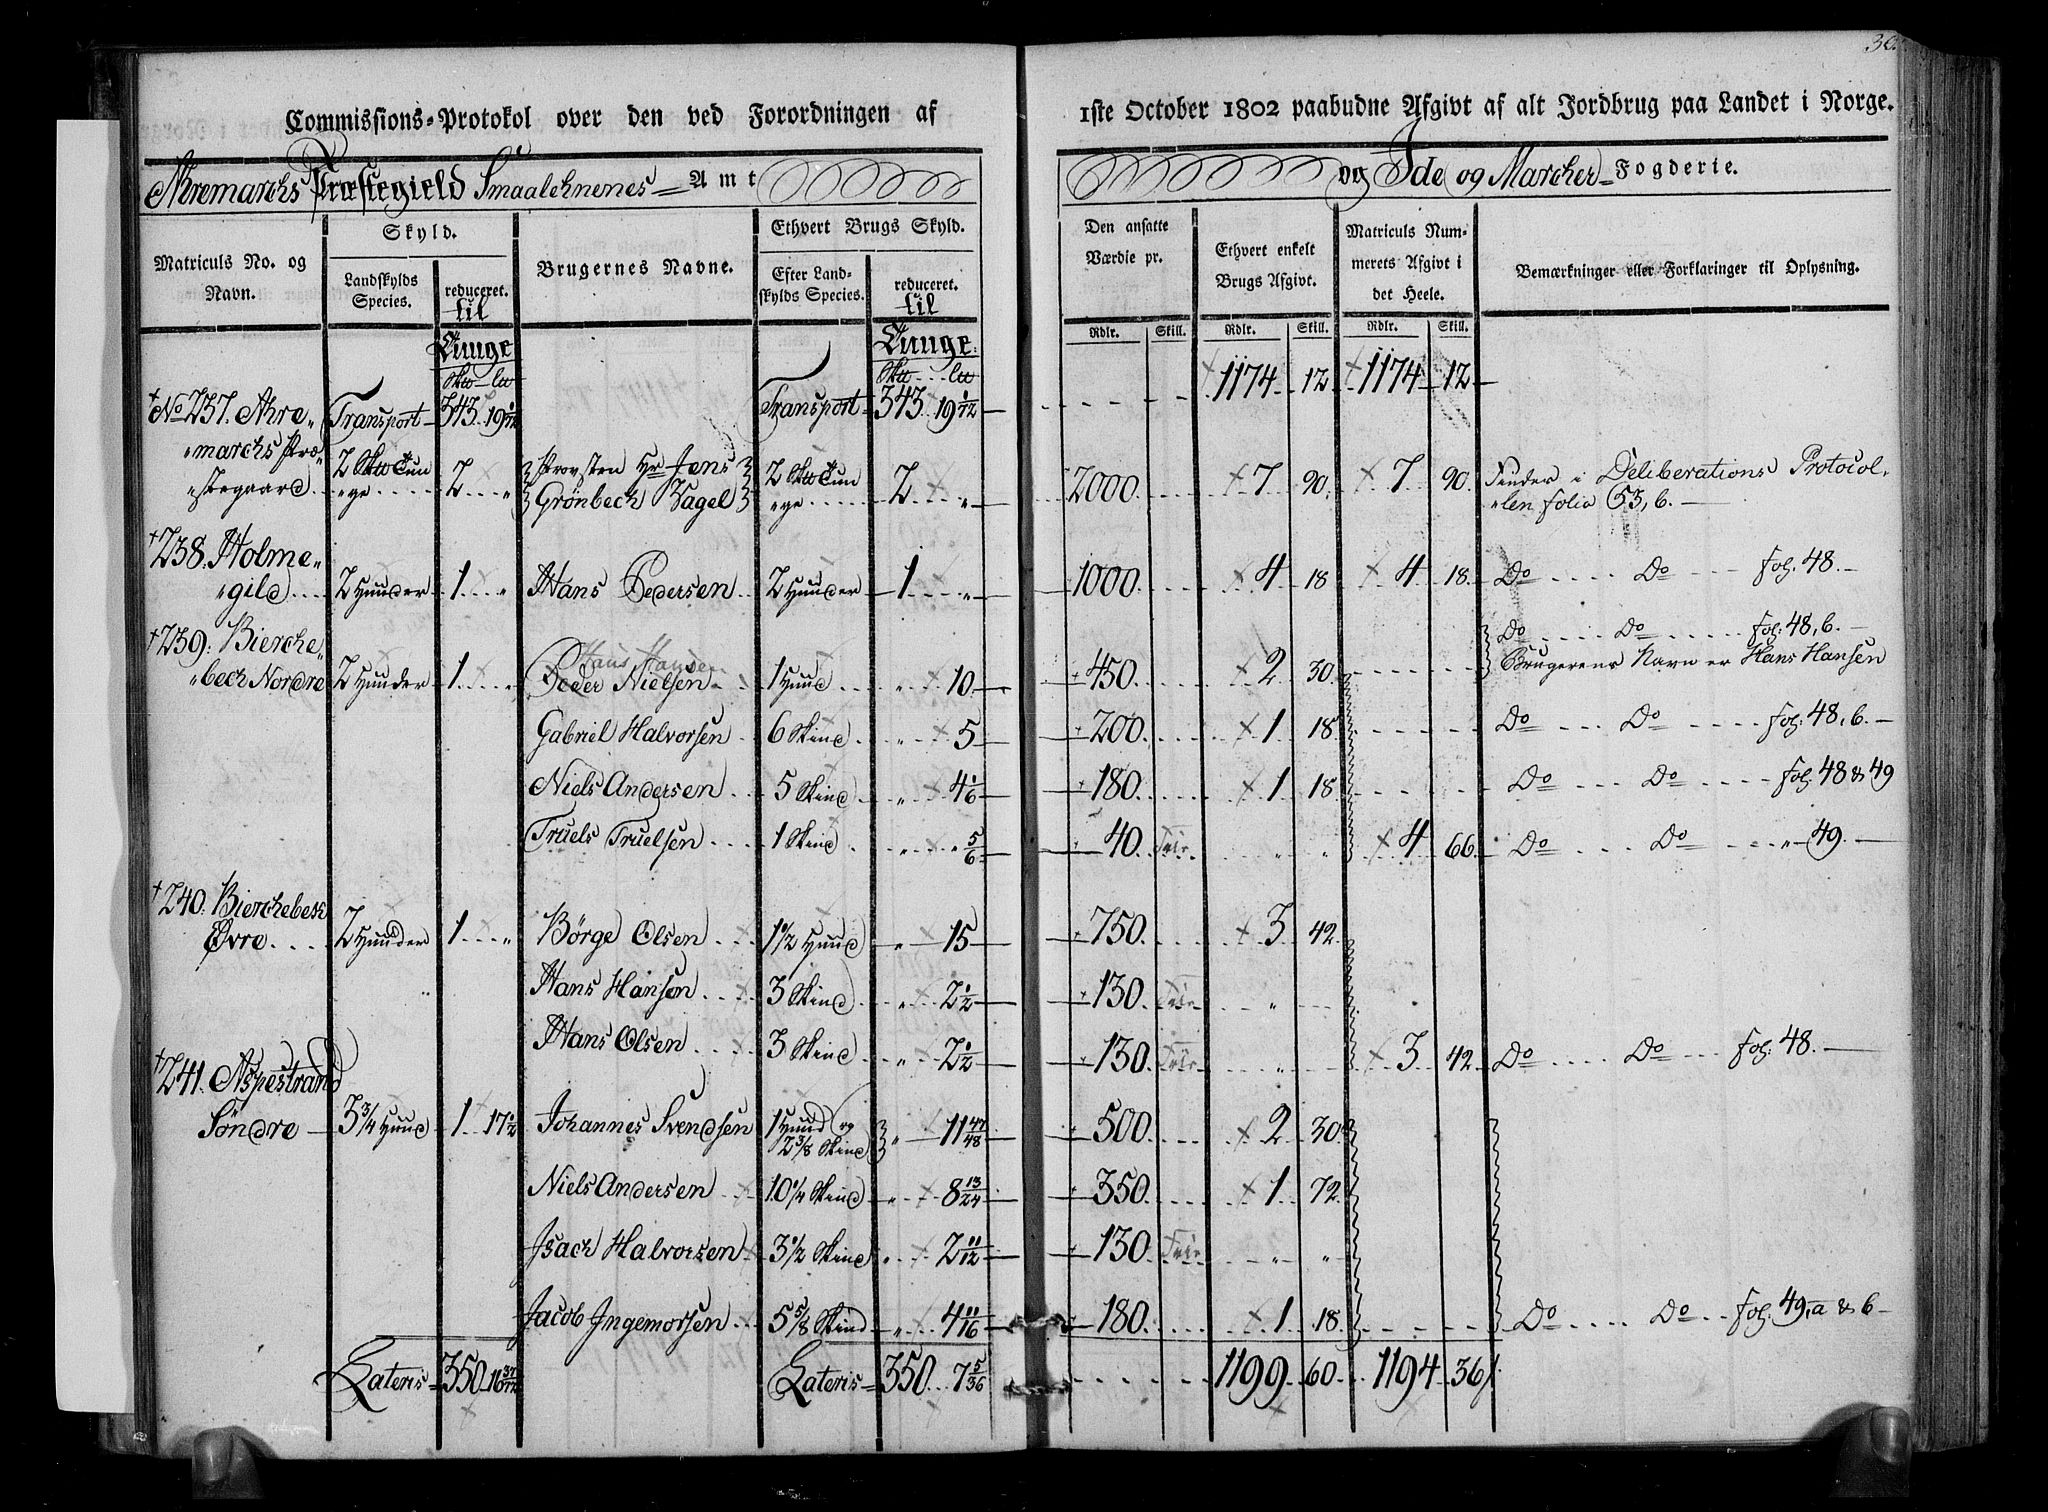 30.
Commissions=Protokol over den ved Forordningen af 1ste October 1802 paabudne Afgivt af alt Jordbrug paa Landet i Norge.
Akremarchs Præstegield Smaalehnenes Amt og Ide og Marcher Fogderie.
Matriculs No. og Navn.
Skyld.
Landskylds Species.
reduceret. til
Tunge
Sku lu
Brugernes Navne.
Ethvert Brugs Skyld.
Efter Landskylds Species.
reduceret. til
Tunge
Sku lu
Den ansatte Værdie pr.
Rdlr. Skill.
Ethvert enkelt Brugs Afgivt.
Rdlr. Skill.
Matriculs Nummerets Afgivt i det Heele.
Rdlr. Skill.
Bemærkninger eller Forklaringer til Oplysning.
Transport 343 19 1/12 Transport 343 19 1/12 1174 12 1174 12
No 237. Akremarchs Præstegaard 2 Sku Tunge 2 " Provsten Hr Jens Grønbech Vagel 2 Sku Tunge 2 " 2000 7 90 7 90 Findes i Deliberations Protocollen folio 53, b.
238. Holmegild 2 Huuder 1 " Hans Pedersen 2 Huuder 1 " 1000 4 18 4 18 Do Do fol: 48.
239. Bierchebech Nordre 2 Huuder 1 " Peder Nielsen 1 Huud " 10 450 2 30 Do Do fol: 48, b.
Hans Hansen
Brugerens Navn er Hans Hansen
Gabriel Halvorsen 6 Skind " 5 200 1 18 Do Do fol: 48, b.
Niels Andersen 5 Skind " 4 1/6 180 1 18 Do Do fol: 48 & 49
Truels Truelsen 1 Skind " " 5/6 40 Frir " " 4 66 Do Do " 49.
240. Bierchebech Øvre 2 Huuder 1 " Börge Olsen 1 1/2 Huud " 15 750 3 42
Hans Hansen 3 Skind " 2 1/2 130 Frir "
Hans Olsen 3 Skind " 2 1/2 130 Frir " 3 42 Do Do fol: 48.
241. Aspestrand Söndre 3 3/4 Huud 1 17 1/2 Johannes Svendsen 1 Huud og 2 3/8 Skind " 11 47/48 500 2 30
Niels Andersen 10 1/4 Skind " 8 13/24 350 1 72
Isach Halvorsen 3 1/2 Skind " 2 11/12 130 Frir " "
Jacob Ingemorsen 5 5/8 Skind " 4 11/16 180 1 18 Do Do fol: 49, a & b
Lateris 350 16 37/72 Lateris 350 7 5/36 1199 60 1194 36